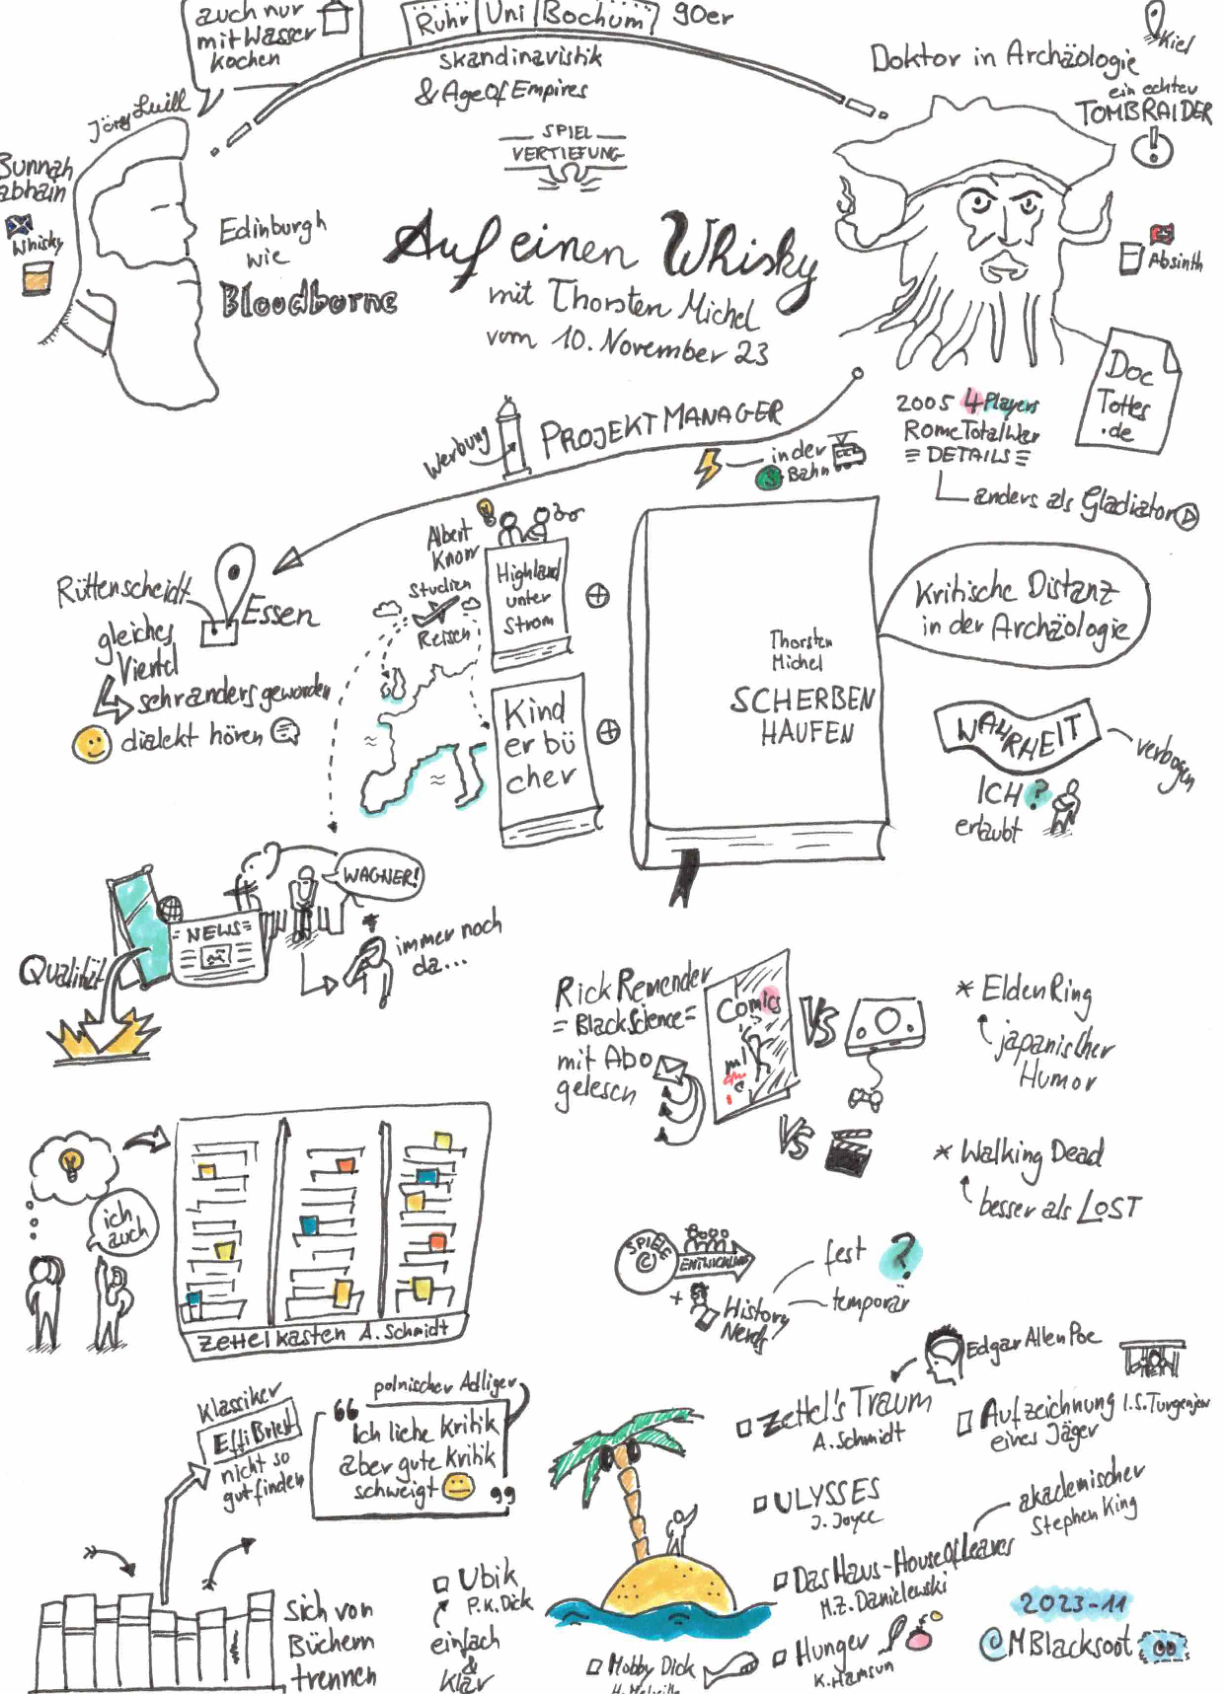 auch nur
mit Wasser
kochen
Ruhr Uni Bochum 90er
Skandinavistik
& Age Of Empires
Kiel
Doktor in Archäologie
ein echter
TOMBRAIDER
Jörg Luibl
SPIEL
VERTIEFUNG
Bunnah
abhain
Whisky
Edinburgh
wie
Bloodborne
Auf einen Whisky
mit Thorsten Michel
vom 10. November 23
Absinth
Doc
Tottes
.de
2005 4Players
Rome Total War
DETAILS
anders als Gladiator
Werbung
PROJEKTMANAGER
in der
Bahn
Rüttenscheidt
Essen
gleiches
Viertel
sehr anders geworden
dialekt hören
Albert
Knorr
Studien
Reisen
Highland
unter
Strom
Kind
er bü
cher
Thorsten
Michel
SCHERBEN
HAUFEN
Kritische Distanz
in der Archäologie
WAHRHEIT
verbogen
ICH?
erlaubt
WAGNER!
NEWS
Qualität
immer noch
da...
Rick Remender
=Black Science=
mit Abo
gelesen
Comics
VS
VS
* Elden Ring
japanischer
Humor
* Walking Dead
besser als LOST
ich
auch
Zettelkasten A. Schmidt
SPIELE
ENTWICKLUNG
+
History
Nerd
fest ?
temporär
Klassiker
Effi Briest
nicht so
gut finden
polnischer Adliger
“ Ich liebe Kritik
aber gute Kritik
schweigt ”
Edgar Allen Poe
Zettel's Traum
A. Schmidt
Aufzeichnung I.S. Turgenjew
eines Jäger
ULYSSES
J. Joyce
akademischer
Stephen King
Das Haus - House Of Leaves
M.Z. Danielewski
Hunger
K. Hamsun
Mobby Dick
H. Melville
Sich von
Büchern
trennen
Ubik
P.K. Dick
einfach
&
klar
2023-11
@MBlacksoot